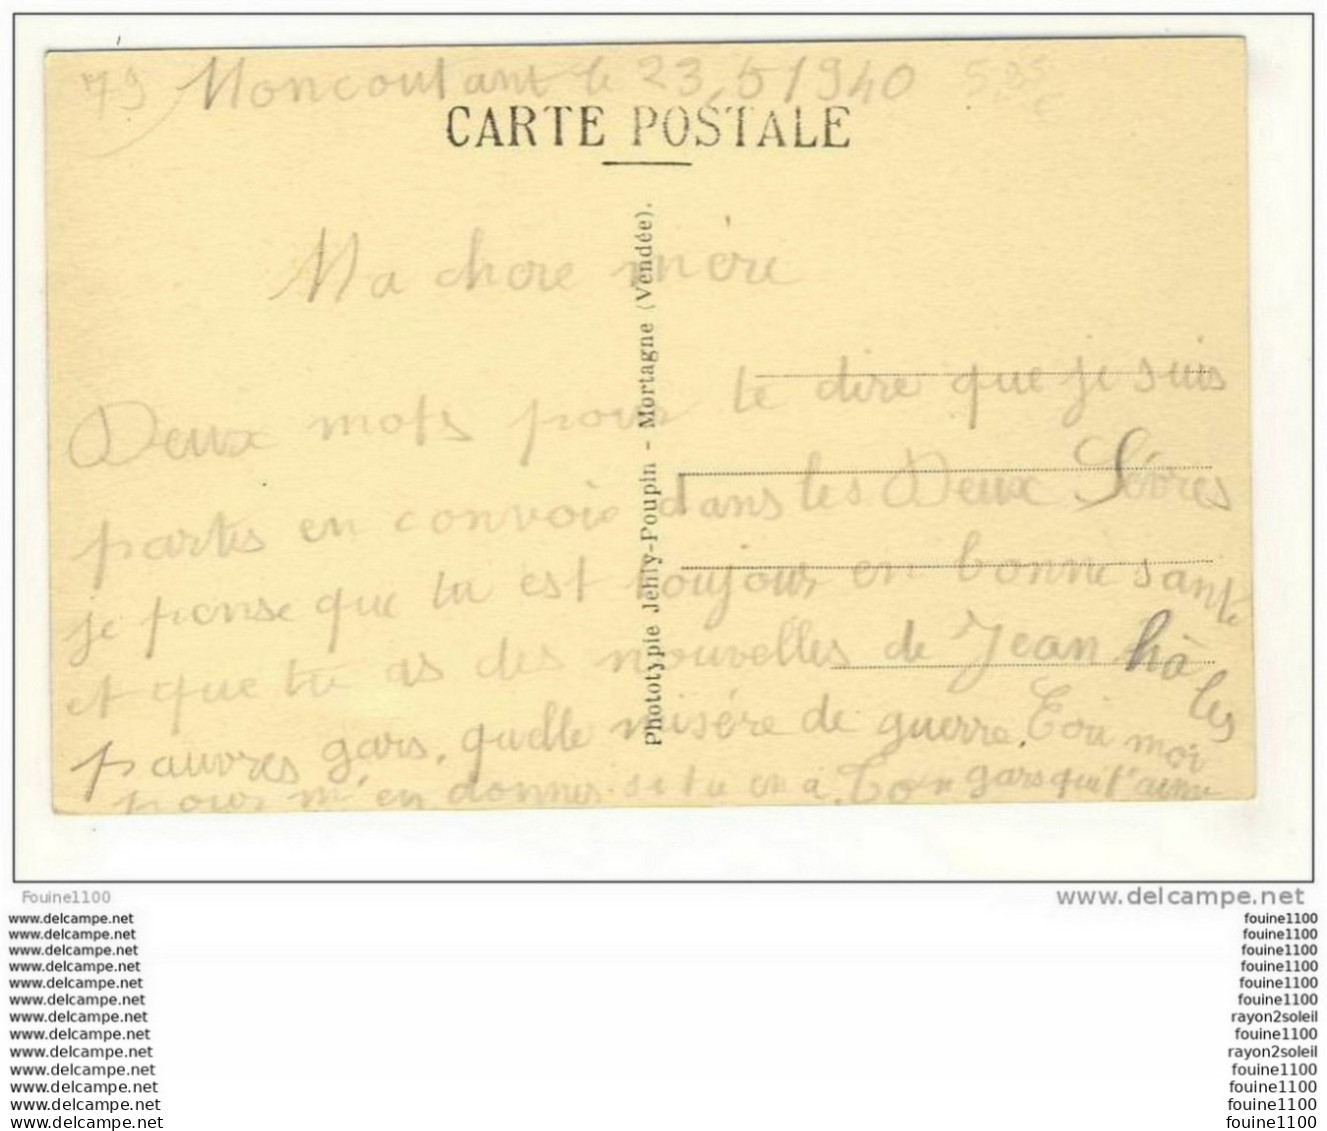 79 Moncoutant le 23,5 1940
CARTE POSTALE
Ma chere mère
Deux mots pour te dire que je suis
partis en convoie dans les Deux Sévres
je pense que tu est toujour en bonne santé
et que tu as des nouvelles de Jean hà les
pauvres gars, quelle misére de guerre. Toi moi
pour m'en donner si tu en a. Ton gars qui t'aime
Phototypie Jehly-Poupin - Mortagne (Vendée).
Fouine1100
www.delcampe.net
www.delcampe.net fouine1100
www.delcampe.net fouine1100
www.delcampe.net fouine1100
www.delcampe.net fouine1100
www.delcampe.net fouine1100
www.delcampe.net fouine1100
www.delcampe.net rayon2soleil
www.delcampe.net fouine1100
www.delcampe.net rayon2soleil
www.delcampe.net fouine1100
www.delcampe.net fouine1100
www.delcampe.net fouine1100
www.delcampe.net fouine1100